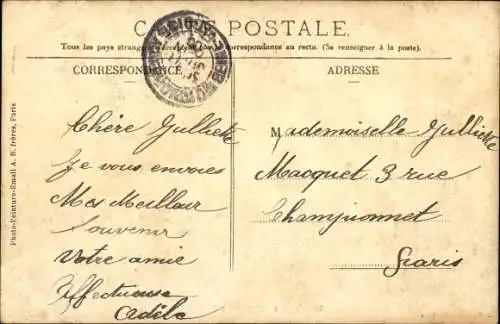 CARTE POSTALE
Tous les pays étrangers n'acceptent pas la correspondance au recto. (Se renseigner à la poste).
CORRESPONDANCE
ADRESSE
Chère Julliette
Je vous envoies
Mes Meillair
Souvenir
Votre amie
Affectueuse
Adèle
Mademoiselle Julliette
Macquet 3 rue
Championnet
Paris
Photo-Peinture-Email A. B. frères, Paris